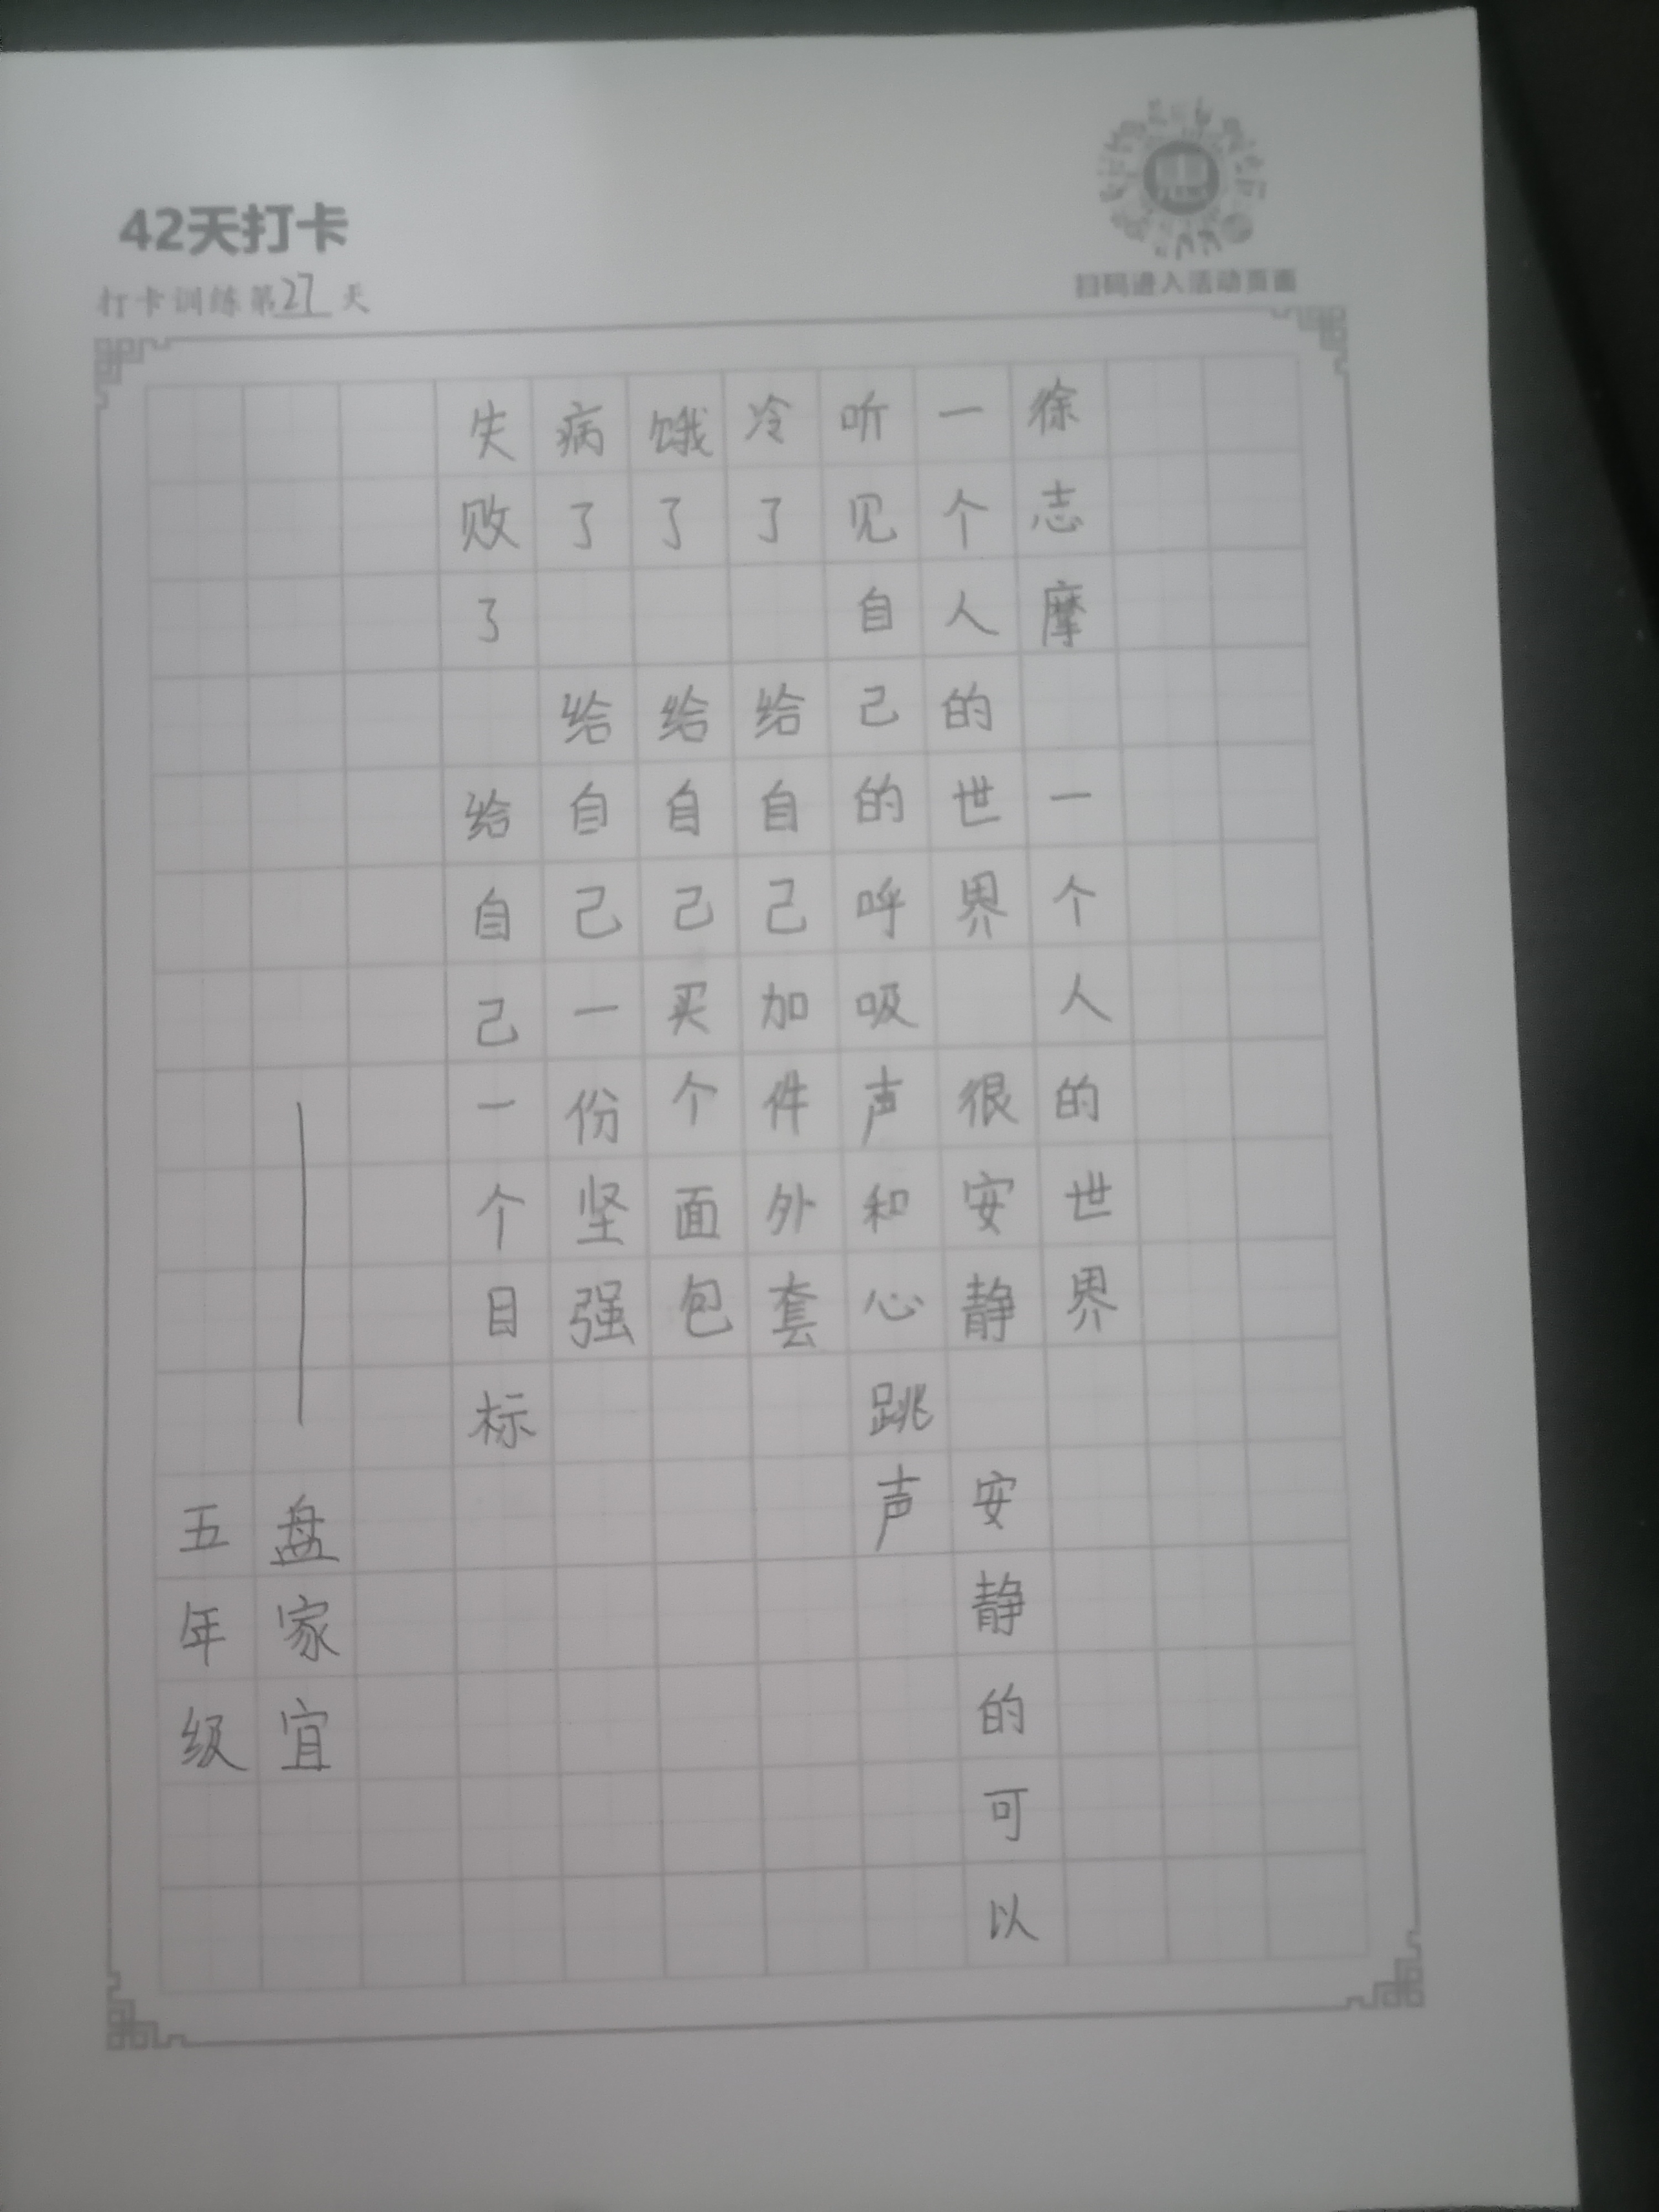 42天打卡
打卡训练第27天
扫码进入活动页面
徐志摩 一个人的世界
一个人的世界 很安静 安静的可以
听见自己的呼吸声和心跳声
冷了 给自己加件外套
饿了 给自己买个面包
病了 给自己一份坚强
失败了 给自己一个目标
——盘家宜
五年级